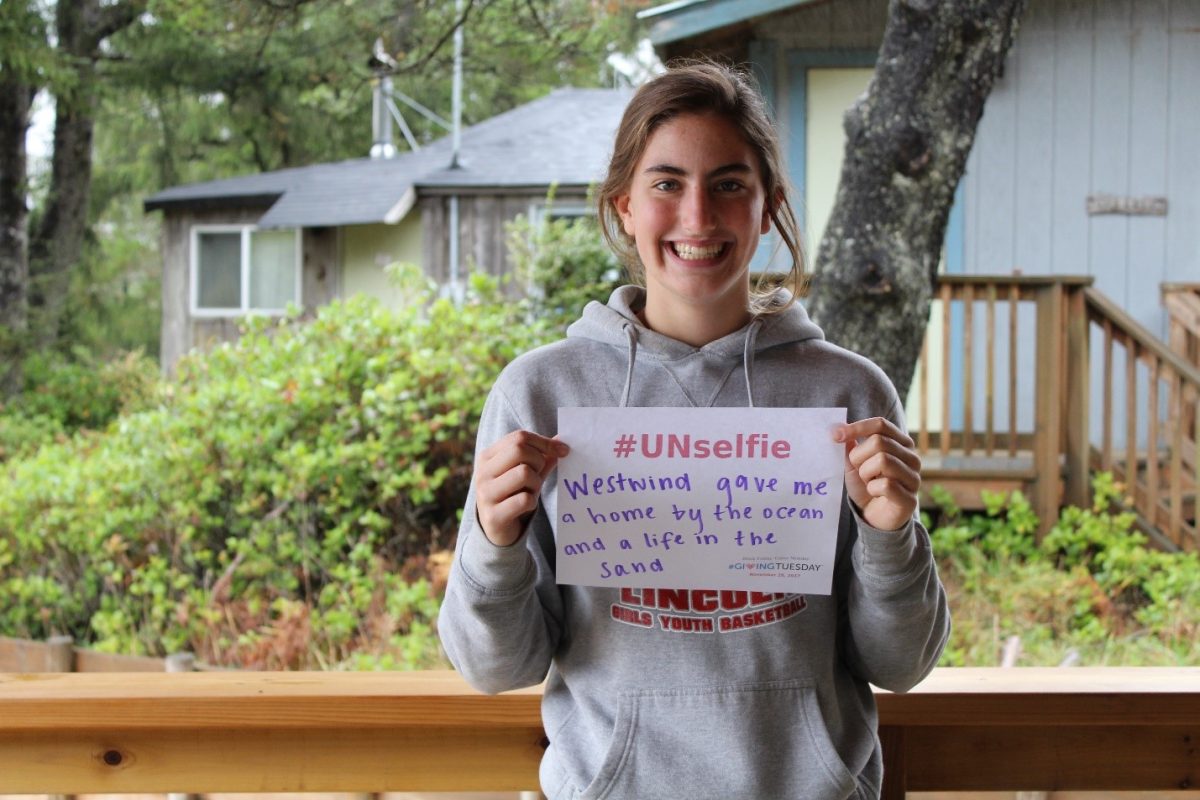 #UNselfie
Westwind gave me
a home by the ocean
and a life in the
sand
#GIVINGTUESDAY
November 28, 2017
LINCOLN
GIRLS YOUTH BASKETBALL